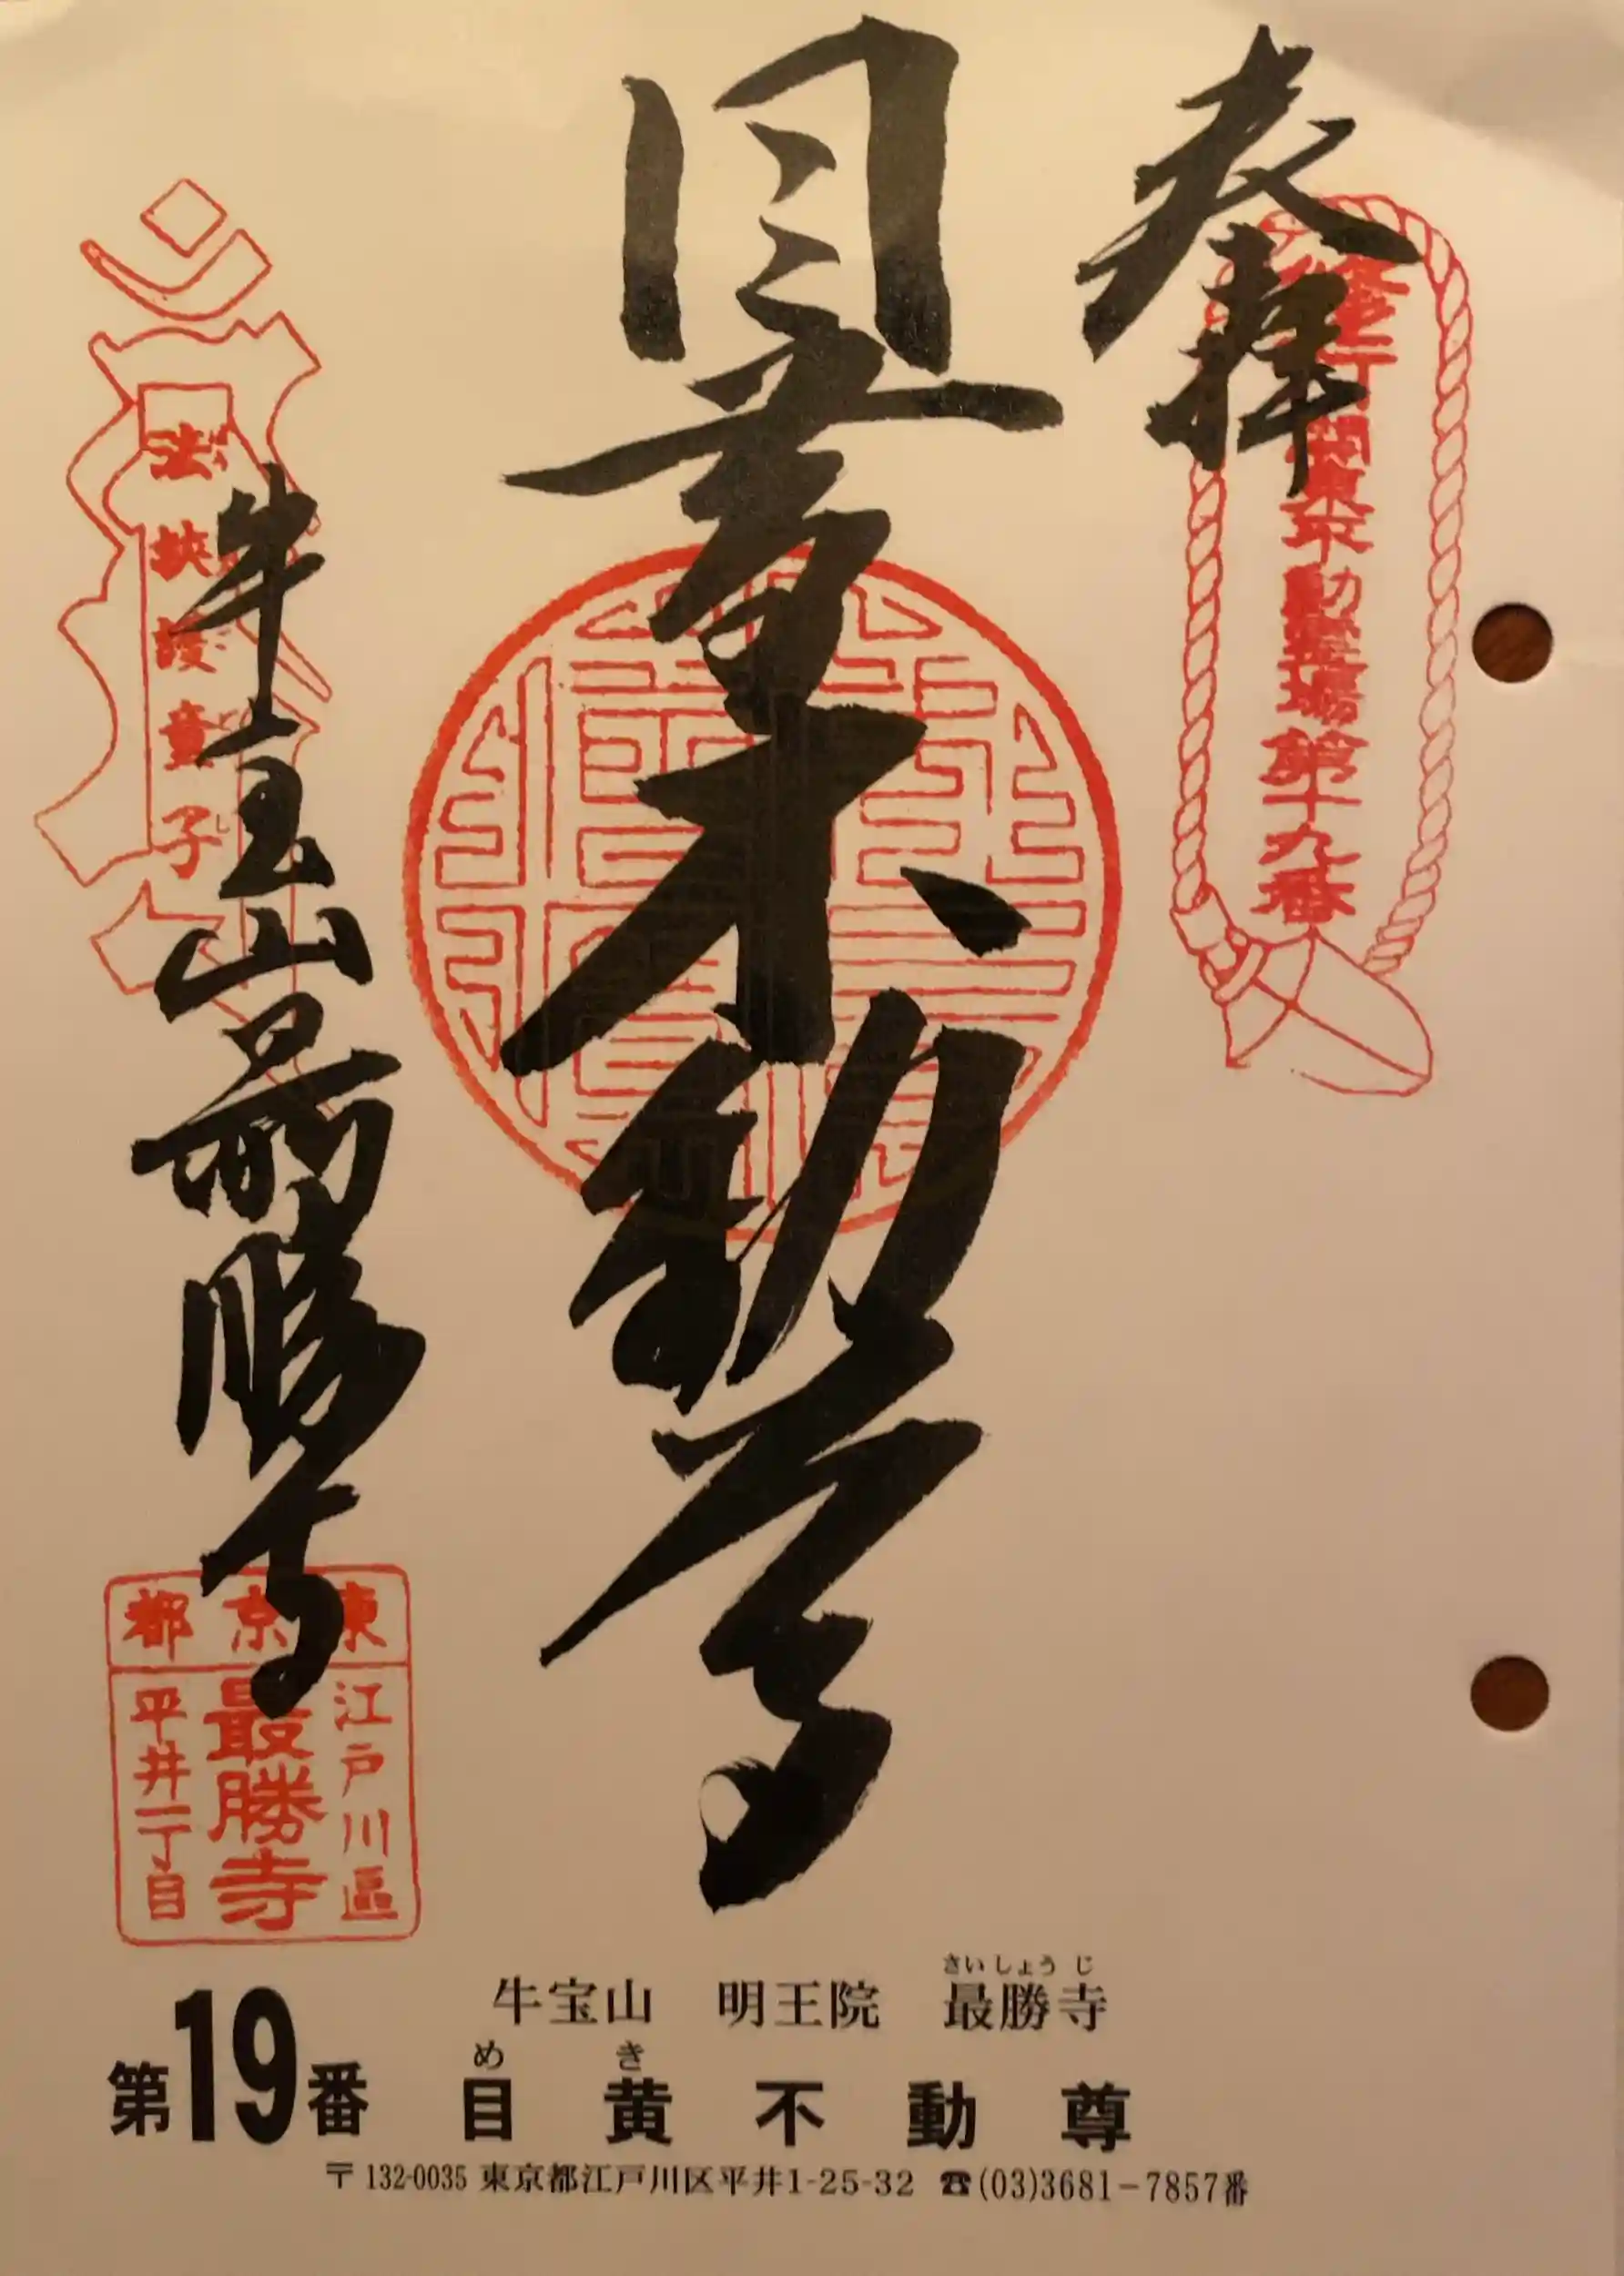 奉拝
関東不動霊場第十九番
目黄不動尊
法挟護童子
牛宝山最勝寺
東京都
江戸川區
最勝寺
平井一丁目
さいしょうじ
牛宝山 明王院 最勝寺
めき
第19番 目黄不動尊
〒132-0035 東京都江戸川区平井1-25-32 ☎(03)3681-7857番